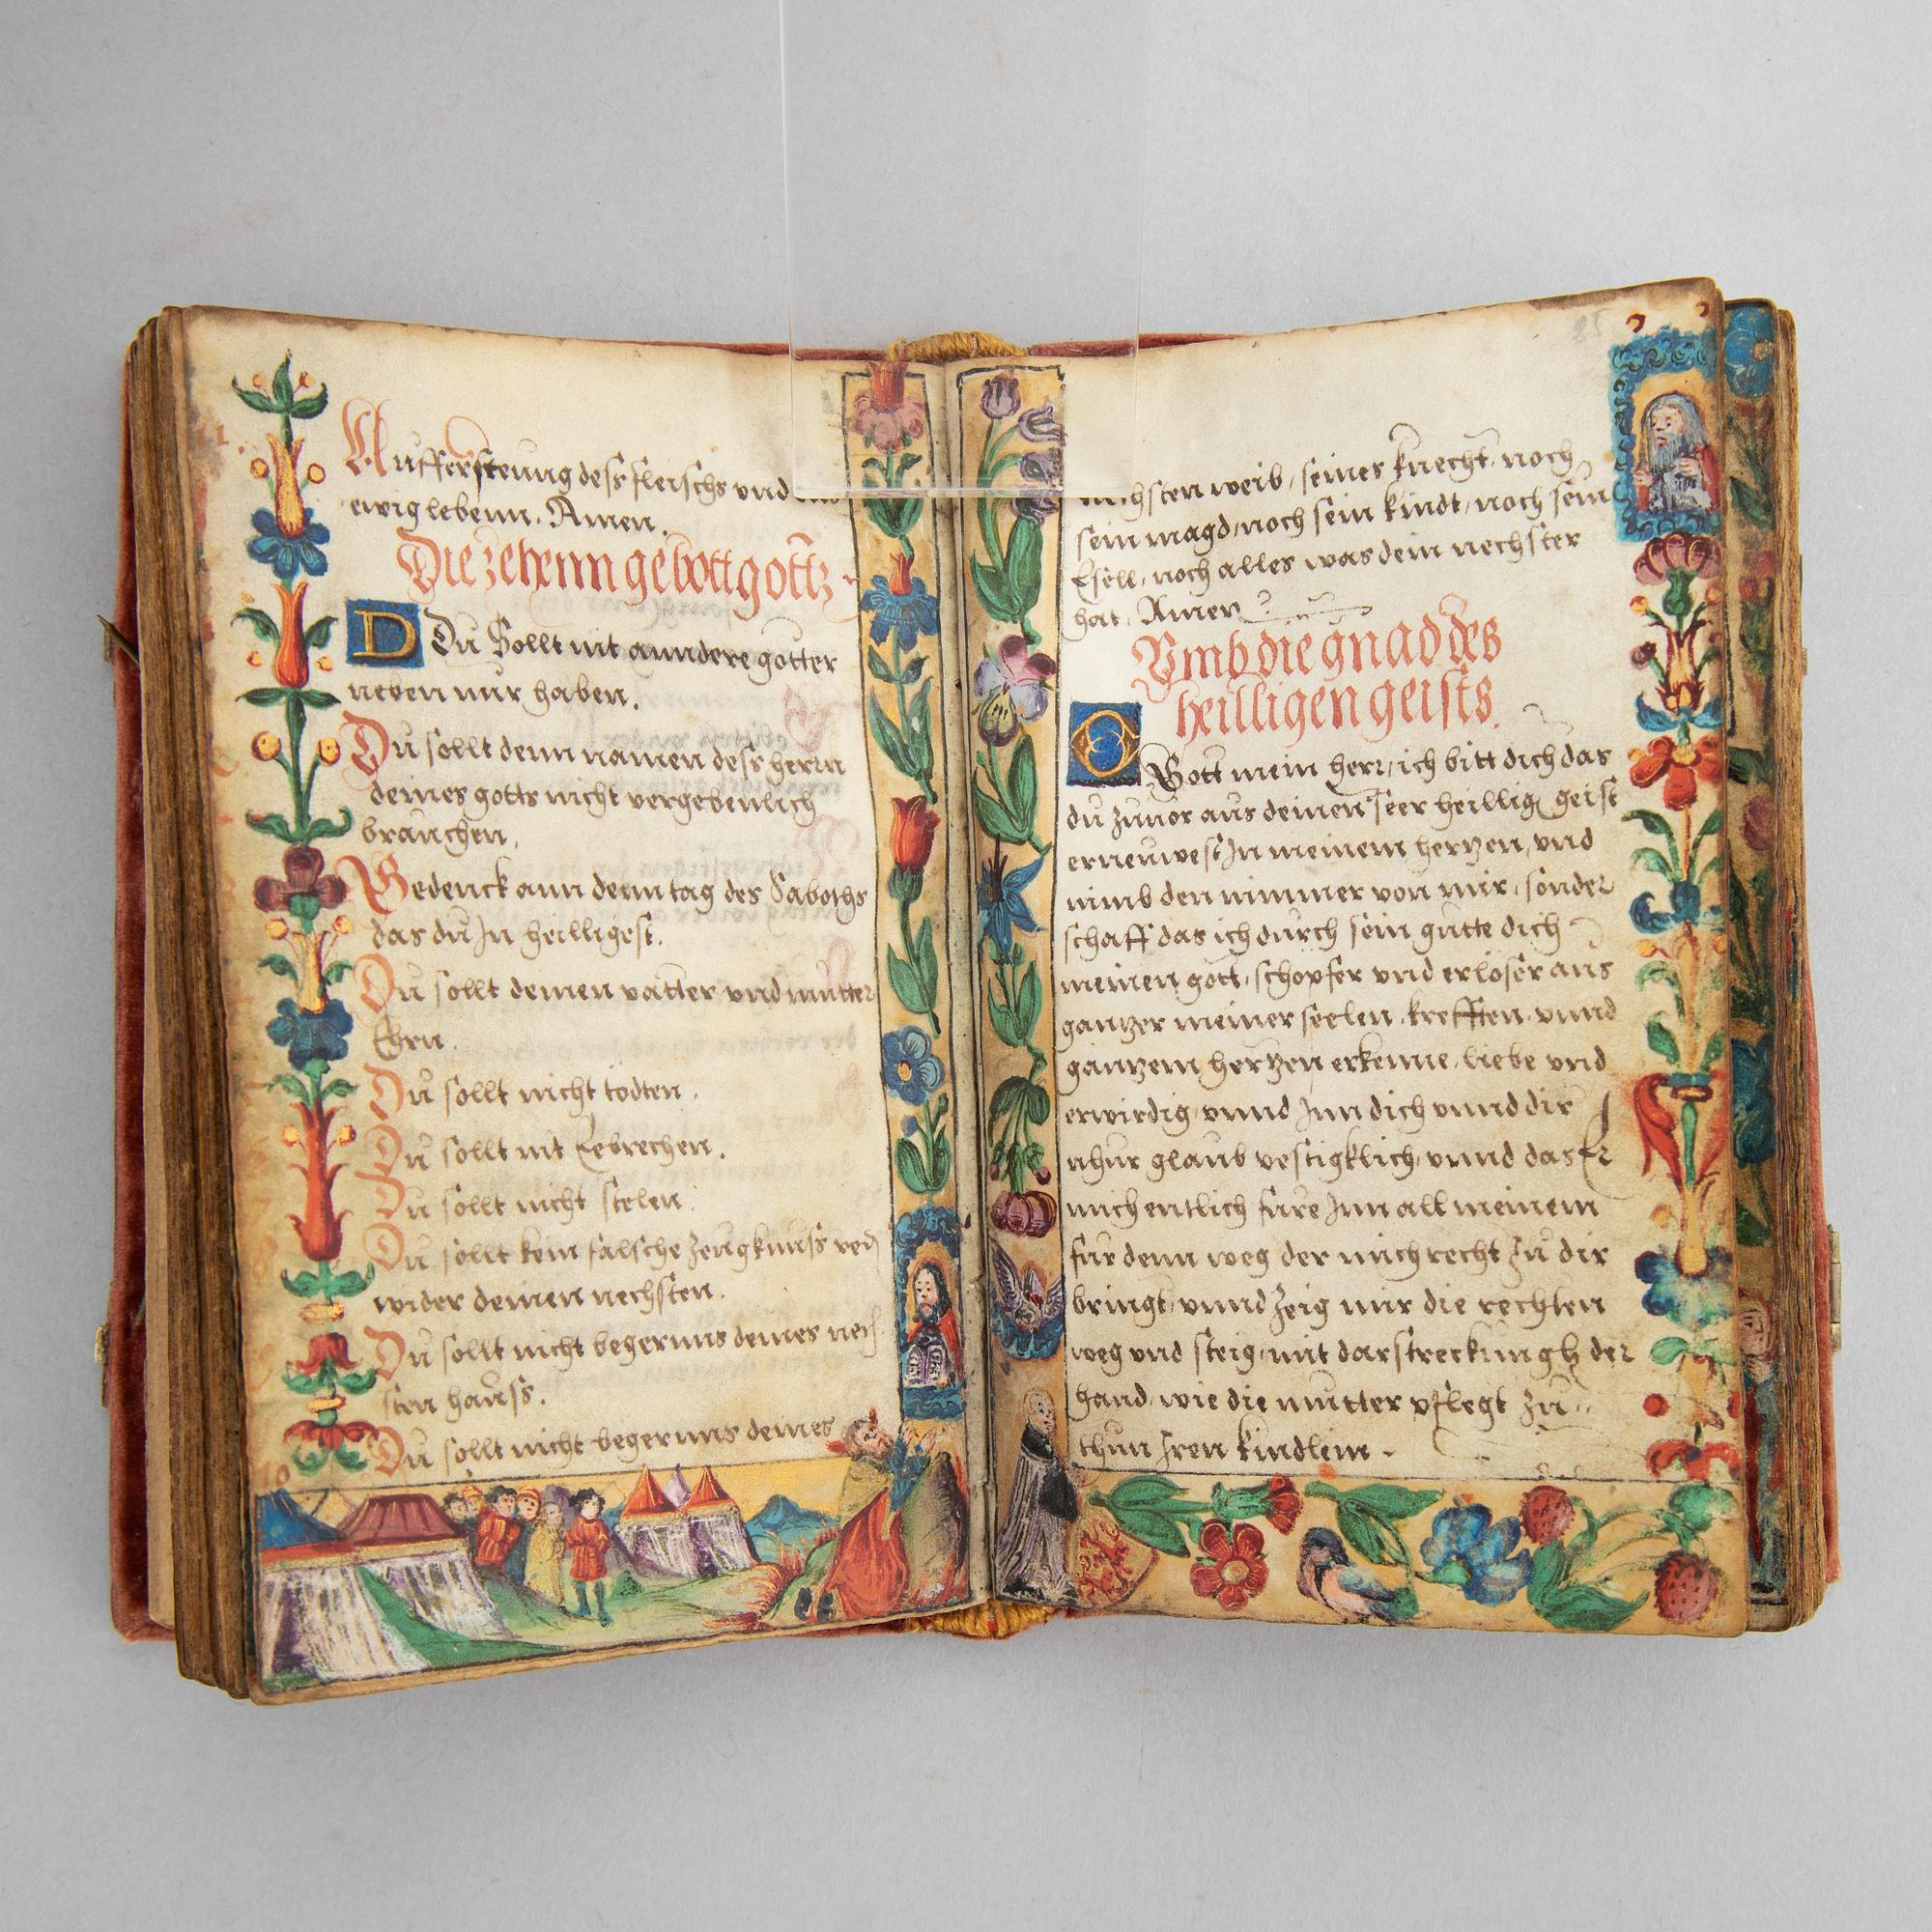 Auffersteung dess fleischs vnd
ewig lebenn. Amen.
Die zehenn gebott gottz
D Du Sollt nit anndere gotter
neben mir haben.
Du sollt denn namen dess herrn
deines gotts nicht vergebenlich
brauchen.
Bedenck ann denn tag des Saboths
das du In heilligest.
Du sollt deinen vatter vnd mutter
Ehrn.
Du sollt nicht tödten.
Du sollt nit Eebrechen.
Du sollt nicht stelen.
Du sollt kein falsche Zeugknuss
wider deinen nechsten.
Du sollt nicht begernns deines nech
sten hauss.
Du sollt nicht begernns deines
25
nechsten weib, seines knecht noch
sein magd, noch sein kindt, noch sein
Esell, noch alles was dein nechster
hat. Amen
Vmb die gnad des
heilligen geists.
O Gott mein herr, ich bitt dich das
du zuuor aus deinen seer heillig geist
erneuwest In meinem hertzen, vnd
nimb den nimmer von mir, sonder
schaff das ich durch sein gutte dich
meinen gott, schöpfer vnd erlöser aus
gantzer meiner seelen, krefften, vnnd
gantzem hertzen erkenne, liebe vnd
erwirdig, vnnd Inn dich vnnd dir
nhur glaub vestigklich, vnnd das Er
mich entlich füre Inn all meinem
für denn weg der mich recht zu dir
bringt, vnnd Zeig mir die rechten
weg vnd steig, mit darstreckungh der
hand, wie die mutter pflegt zu
thun Iren kindlein.